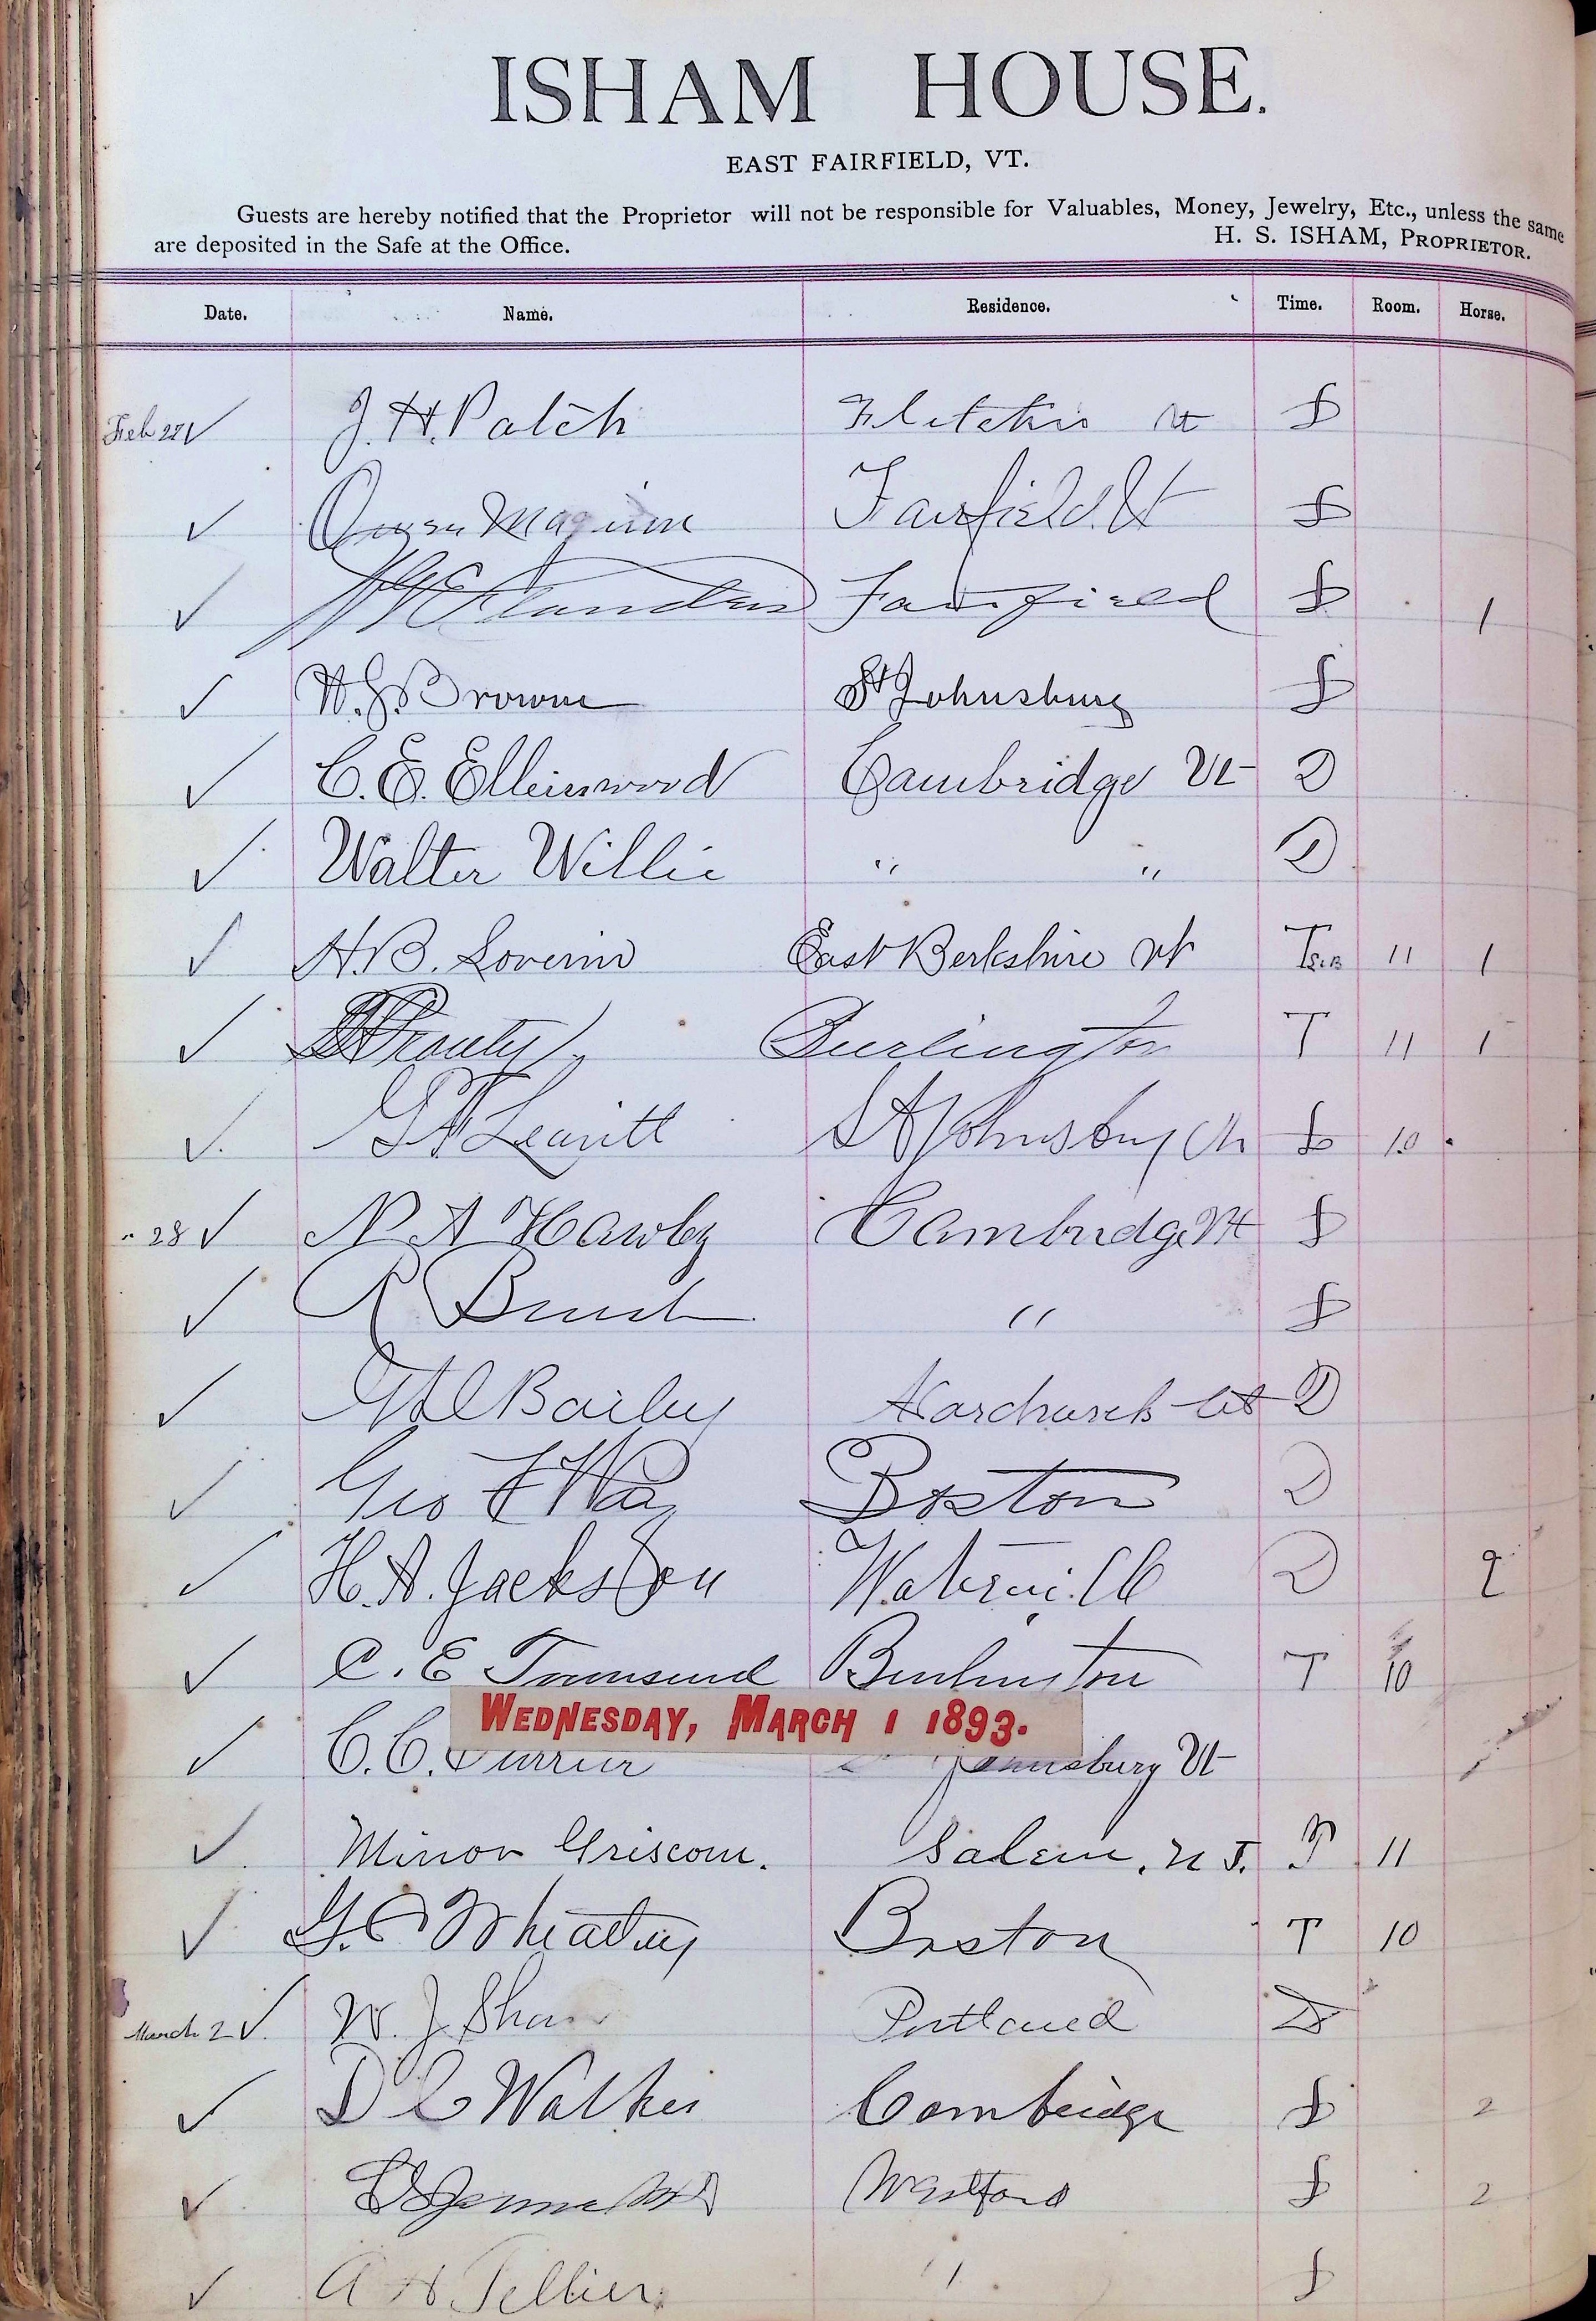 ISHAM HOUSE.
EAST FAIRFIELD, VT.
Guests are hereby notified that the Proprietor will not be responsible for Valuables, Money, Jewelry, Etc., unless the same
are deposited in the Safe at the Office. H. S. ISHAM, PROPRIETOR.
Date. Name. Residence. Time. Room. Horse.
Feb 27 ✓ J. H. Patch Fletcher Vt
✓ Owen Maginn Fairfield. Vt
✓ Flanders Fairfield 1
✓ Browne St Johnsbury
✓ C. E. Ellinwood Cambridge Vt D
✓ Walter Willie " " D
✓ H. B. Lovering East Berkshire Vt T 11 1
✓ Prouty Burlington T 11 1
✓ Leavitt St Johnsbury 10
" 28 ✓ N A Hawley Cambridge Vt
✓ R "
✓ Bailey Hardwick Vt D
✓ Geo F Way Boston D
✓ H. A. Jackson Waterville D 2
✓ C. E Townsend Burlington T 10
WEDNESDAY, MARCH 1 1893.
✓ C. C. Currier Johnsbury Vt
✓ Minor Griscom. Salem, N J. T 11
✓ G. Boston T 10
March 2 ✓ W. J Shaw Portland D
✓ D C Walker Cambridge 2
✓ Westford 2
✓ A H Tellier "